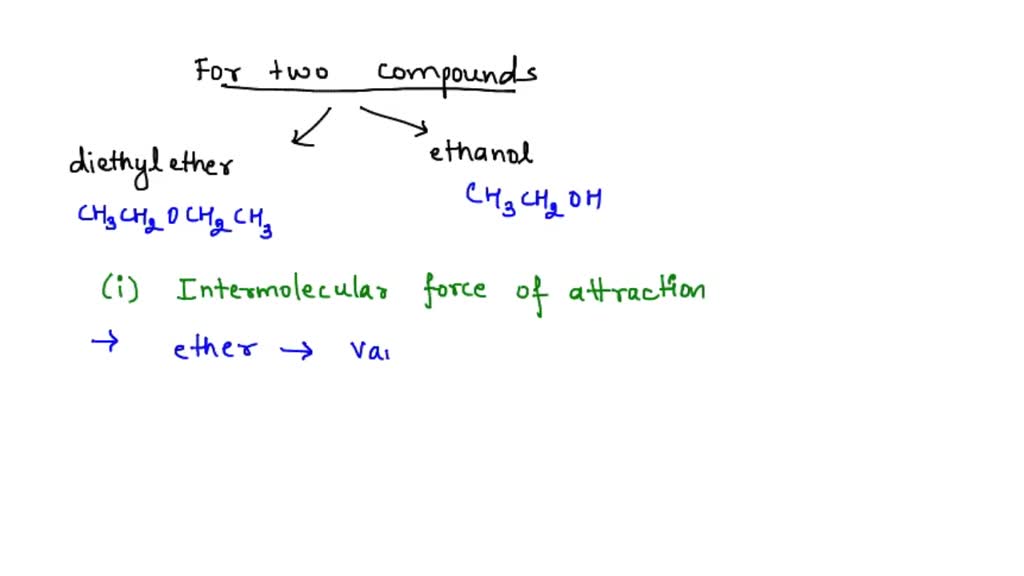 For two compounds
diethyl ether
ethanol
CH3CH2OCH2CH3
CH3CH2OH
(i) Intermolecular force of attraction
→ ether → Van